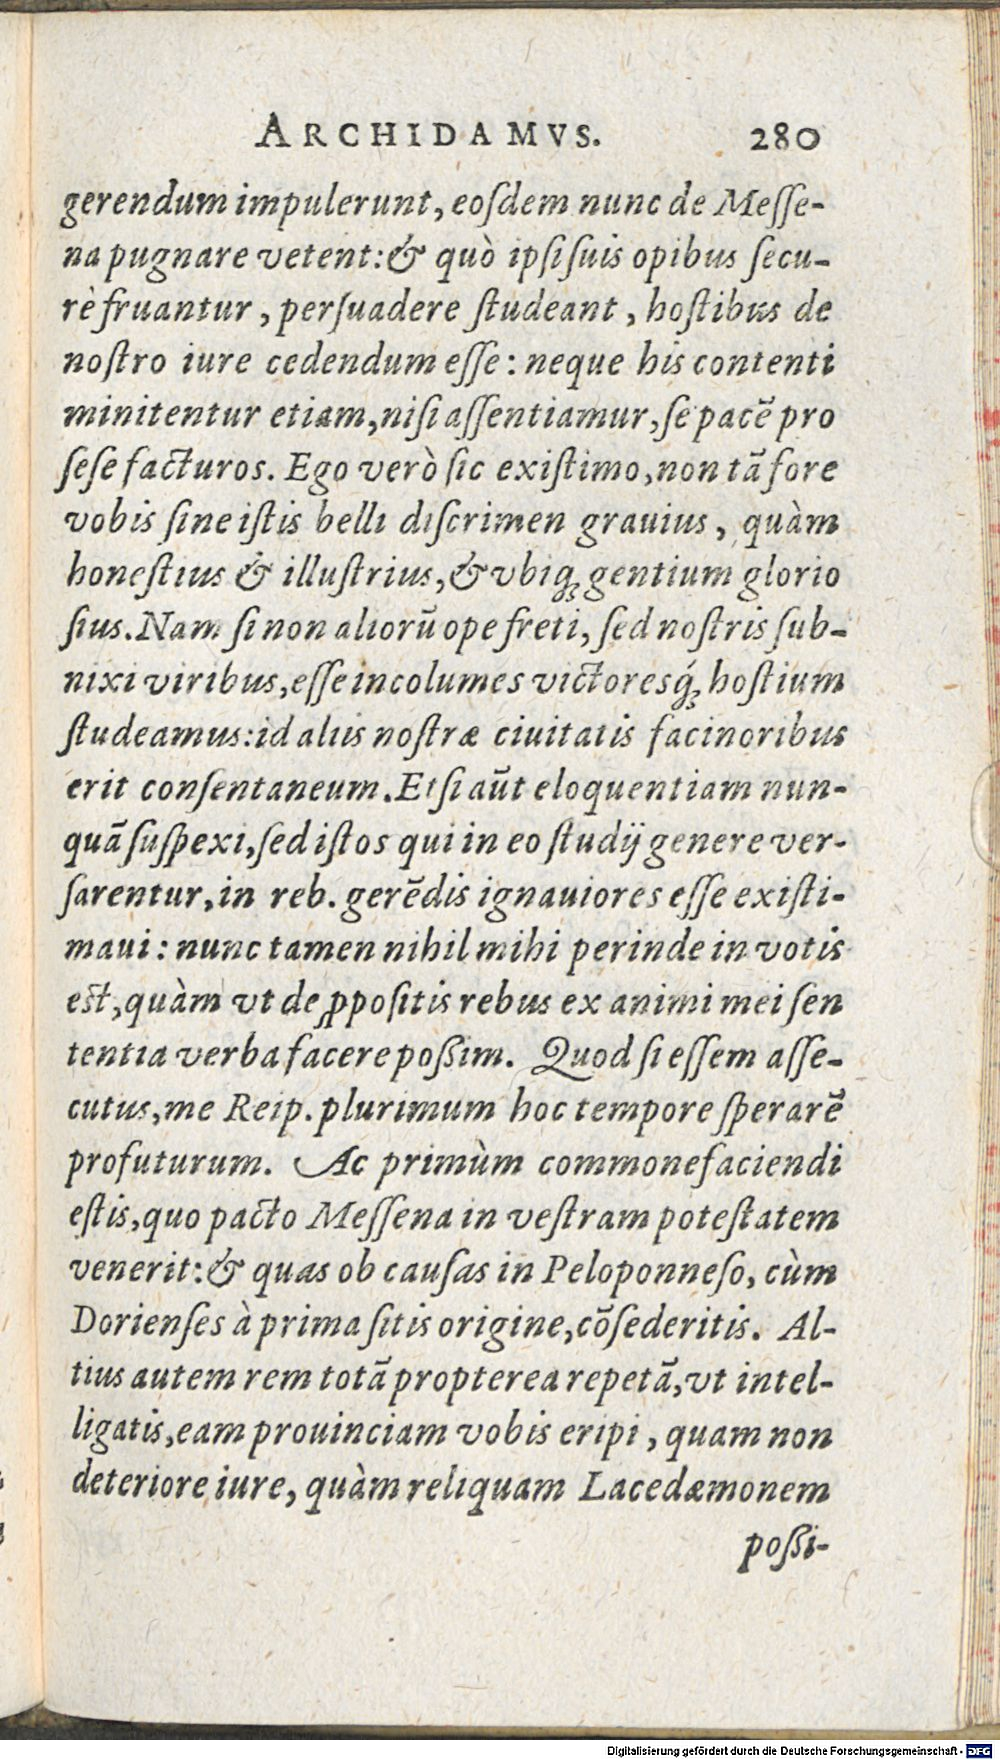 ARCHIDAMVS. 280
gerendum impulerunt, eoſdem nunc de Meſſe-
na pugnare vetent:& quò ipſi ſuis opibus ſecu-
rè fruantur, perſuadere ſtudeant, hoſtibus de
noſtro iure cedendum eſſe: neque his contenti
minitentur etiam, niſi aſſentiamur, ſe pacē pro
ſeſe facturos. Ego verò ſic exiſtimo, non tā fore
vobis ſine iſtis belli diſcrimen grauius, quàm
honeſtius & illuſtrius, & vbiq; gentium glorio
ſius. Nam ſi non aliorū ope freti, ſed noſtris ſub-
nixi viribus, eſſe incolumes victoresq́; hoſtium
ſtudeamus: id aliis noſtræ ciuitatis facinoribus
erit conſentaneum. Etſi aūt eloquentiam nun-
quā ſuſpexi, ſed iſtos qui in eo ſtudij genere ver-
ſarentur, in reb. gerēdis ignauiores eſſe exiſti-
maui: nunc tamen nihil mihi perinde in votis
eſt, quàm vt de ꝓpoſitis rebus ex animi mei ſen
tentia verba facere poßim. Quod ſi eſſem aſſe-
cutus, me Reip. plurimum hoc tempore ſperarē
profuturum. Ac primùm commonefaciendi
eſtis, quo pacto Meſſena in veſtram poteſtatem
venerit: & quas ob cauſas in Peloponneſo, cùm
Dorienſes à prima ſitis origine, cōſederitis. Al-
tius autem rem totā propterea repetā, vt intel-
ligatis, eam prouinciam vobis eripi, quam non
deteriore iure, quàm reliquam Lacedæmonem
poßi-
Digitalisierung gefördert durch die Deutsche Forschungsgemeinschaft - DFG